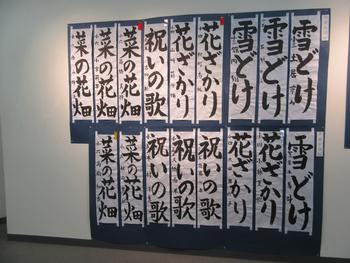 雪どけ
雪どけ
雪どけ
花ざかり
花ざかり
祝いの歌
菜の花畑
菜の花畑
菜の花畑
雪どけ
花ざかり
花ざかり
祝いの歌
祝いの歌
祝いの歌
菜の花畑
菜の花畑